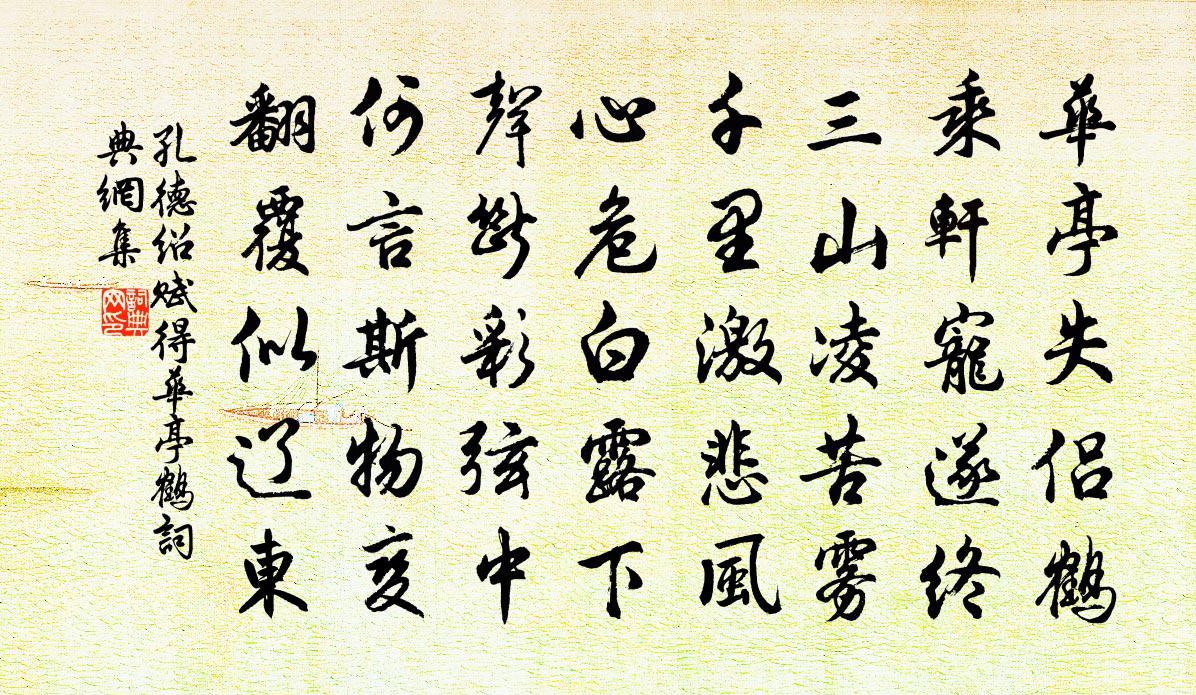 華亭失侣鶴
乘軒寵遂终
三山凌苦雾
千里激悲風
心危白露下
聲斷彩弦中
何言斯物变
翻覆似辽東
孔德绍赋得華亭鶴詞
典網集
詞典网印